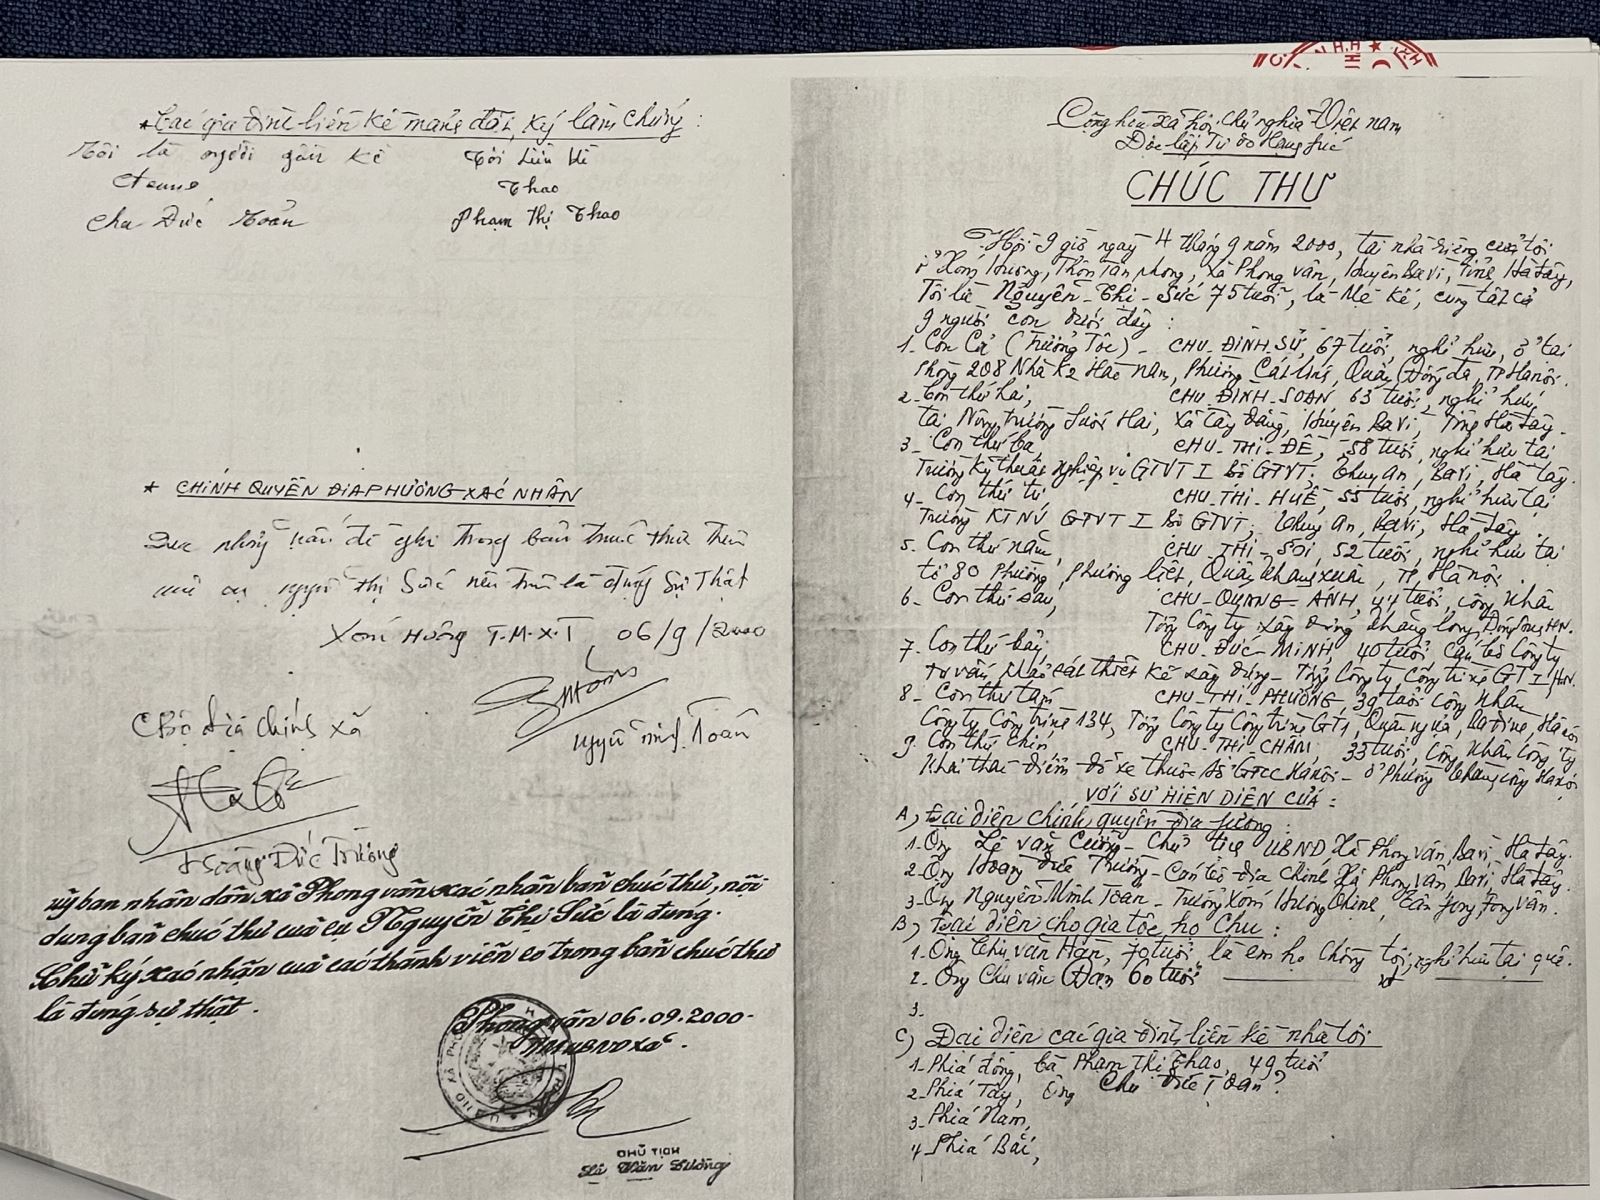 *Các gia đình liền kề mảnh đất, ký làm chứng:
Tôi là người gần kề
Tôi liền kề
Thao
Chu Đức Toản
Phạm Thị Thao
* CHÍNH QUYỀN ĐỊA PHƯƠNG XÁC NHẬN
những vấn đề ghi trong bản chúc thư
cụ Nguyễn thị Sức nêu trên là đúng Sự Thật
Xóm Hương T.M.X.T 06/9/2000
Nguyễn Minh Toán
CBộ địa chính xã
Hoàng Đức Trường
Uỷ ban nhân dân xã Phong vân xác nhận bản chúc thư, nội
dung bản chúc thư của cụ Nguyễn Thị Sức là đúng.
Chữ ký xác nhận của các thành viên có trong bản chúc thư
là đúng sự thật.
Phong vân 06.09.2000
TM UBND xã.
CHỦ TỊCH
Lê Văn Cường
Cộng hoà xã hội chủ nghĩa Việt nam
Độc lập Tự do Hạnh phúc
CHÚC THƯ
Hồi 9 giờ ngày 4 tháng 9 năm 2000, tại nhà riêng của tôi
ở Xóm Hương, Thôn Tân phong, xã Phong vân, Huyện Ba vì, Tỉnh Hà tây,
Tôi là Nguyễn - Thị - Sức 75 tuổi, là Mẹ kế, cùng tất cả
9 người con dưới đây:
1. Con Cả (Trưởng Tộc) - CHU ĐÌNH SỬ, 67 tuổi, nghỉ hưu, ở tại
Phòng 208 Nhà K2 Hào Nam, Phường Cát linh, Quận Đống đa, TP Hanôi.
2. Con thứ hai, CHU ĐÌNH SOAN 63 tuổi, nghỉ hưu
tại Nông trường Suối Hai, Xã Tây Đằng, Huyện Ba Vì, Tỉnh Hà Tây.
3. Con thứ ba CHU - THỊ - ĐỀ, 58 tuổi, nghỉ hưu tại
Trường Kỹ thuật nghiệp vụ GTVT I bộ GTVT, Thuỵ An, Ba vì, Hà tây.
4. Con thứ tư CHU - THỊ - HUÊ, 55 tuổi, nghỉ hưu tại
Trường KTNV GTVT I bộ GTVT, Thuỵ An, Ba vì, Hà tây.
5. Con thứ năm, CHU - THỊ - SOI, 52 tuổi, nghỉ hưu tại
tổ 80 Phường Phương liệt, Quận thanh xuân, TP Hà Nội.
6. Con thứ sáu, CHU - QUANG - ANH, 44 tuổi, công nhân
Tổng Công ty xây dựng thăng long,
7. Con thứ bảy, CHU - ĐỨC - MINH, 40 tuổi cán bộ Công ty
tư vấn khảo sát thiết kế xây dựng - Tổng Công ty Công trình GT I HN.
8. Con thứ tám CHU - THỊ - PHƯƠNG, 39 tuổi công nhân
Công ty Công trình 134, Tổng Công ty Công trình GT1,
9. Con thứ chín CHU - THỊ - CHÂM, 35 tuổi, Công nhân Công ty
Khai thác điểm đỗ xe thuộc Sở GTCC Hà nội -
VỚI SỰ HIỆN DIỆN CỦA:
A) Đại diện chính quyền địa phương:
1. Ông Lê văn Cường - Chủ tịch UBND Xã Phong vân, Ba vì, Hà tây.
2. Ông Hoàng đức Trường - Cán bộ địa chính Xã Phong Vân, Ba vì, Hà Tây.
3. Ông Nguyễn Minh Toán - Trưởng Xóm
B) Đại diện cho gia tộc họ Chu:
1. Ông Chu văn Hán, 70 tuổi, là em họ Chồng tôi, nghỉ hưu tại quê.
2. Ông Chu văn Đạn 60 tuổi
3.
C) Đại diện các gia đình liền kề nhà tôi
1. Phía đông, bà Phạm Thị Thao, 49 tuổi
2. Phía Tây, Ông Chu Đức Toản
3. Phía Nam,
4. Phía Bắc,